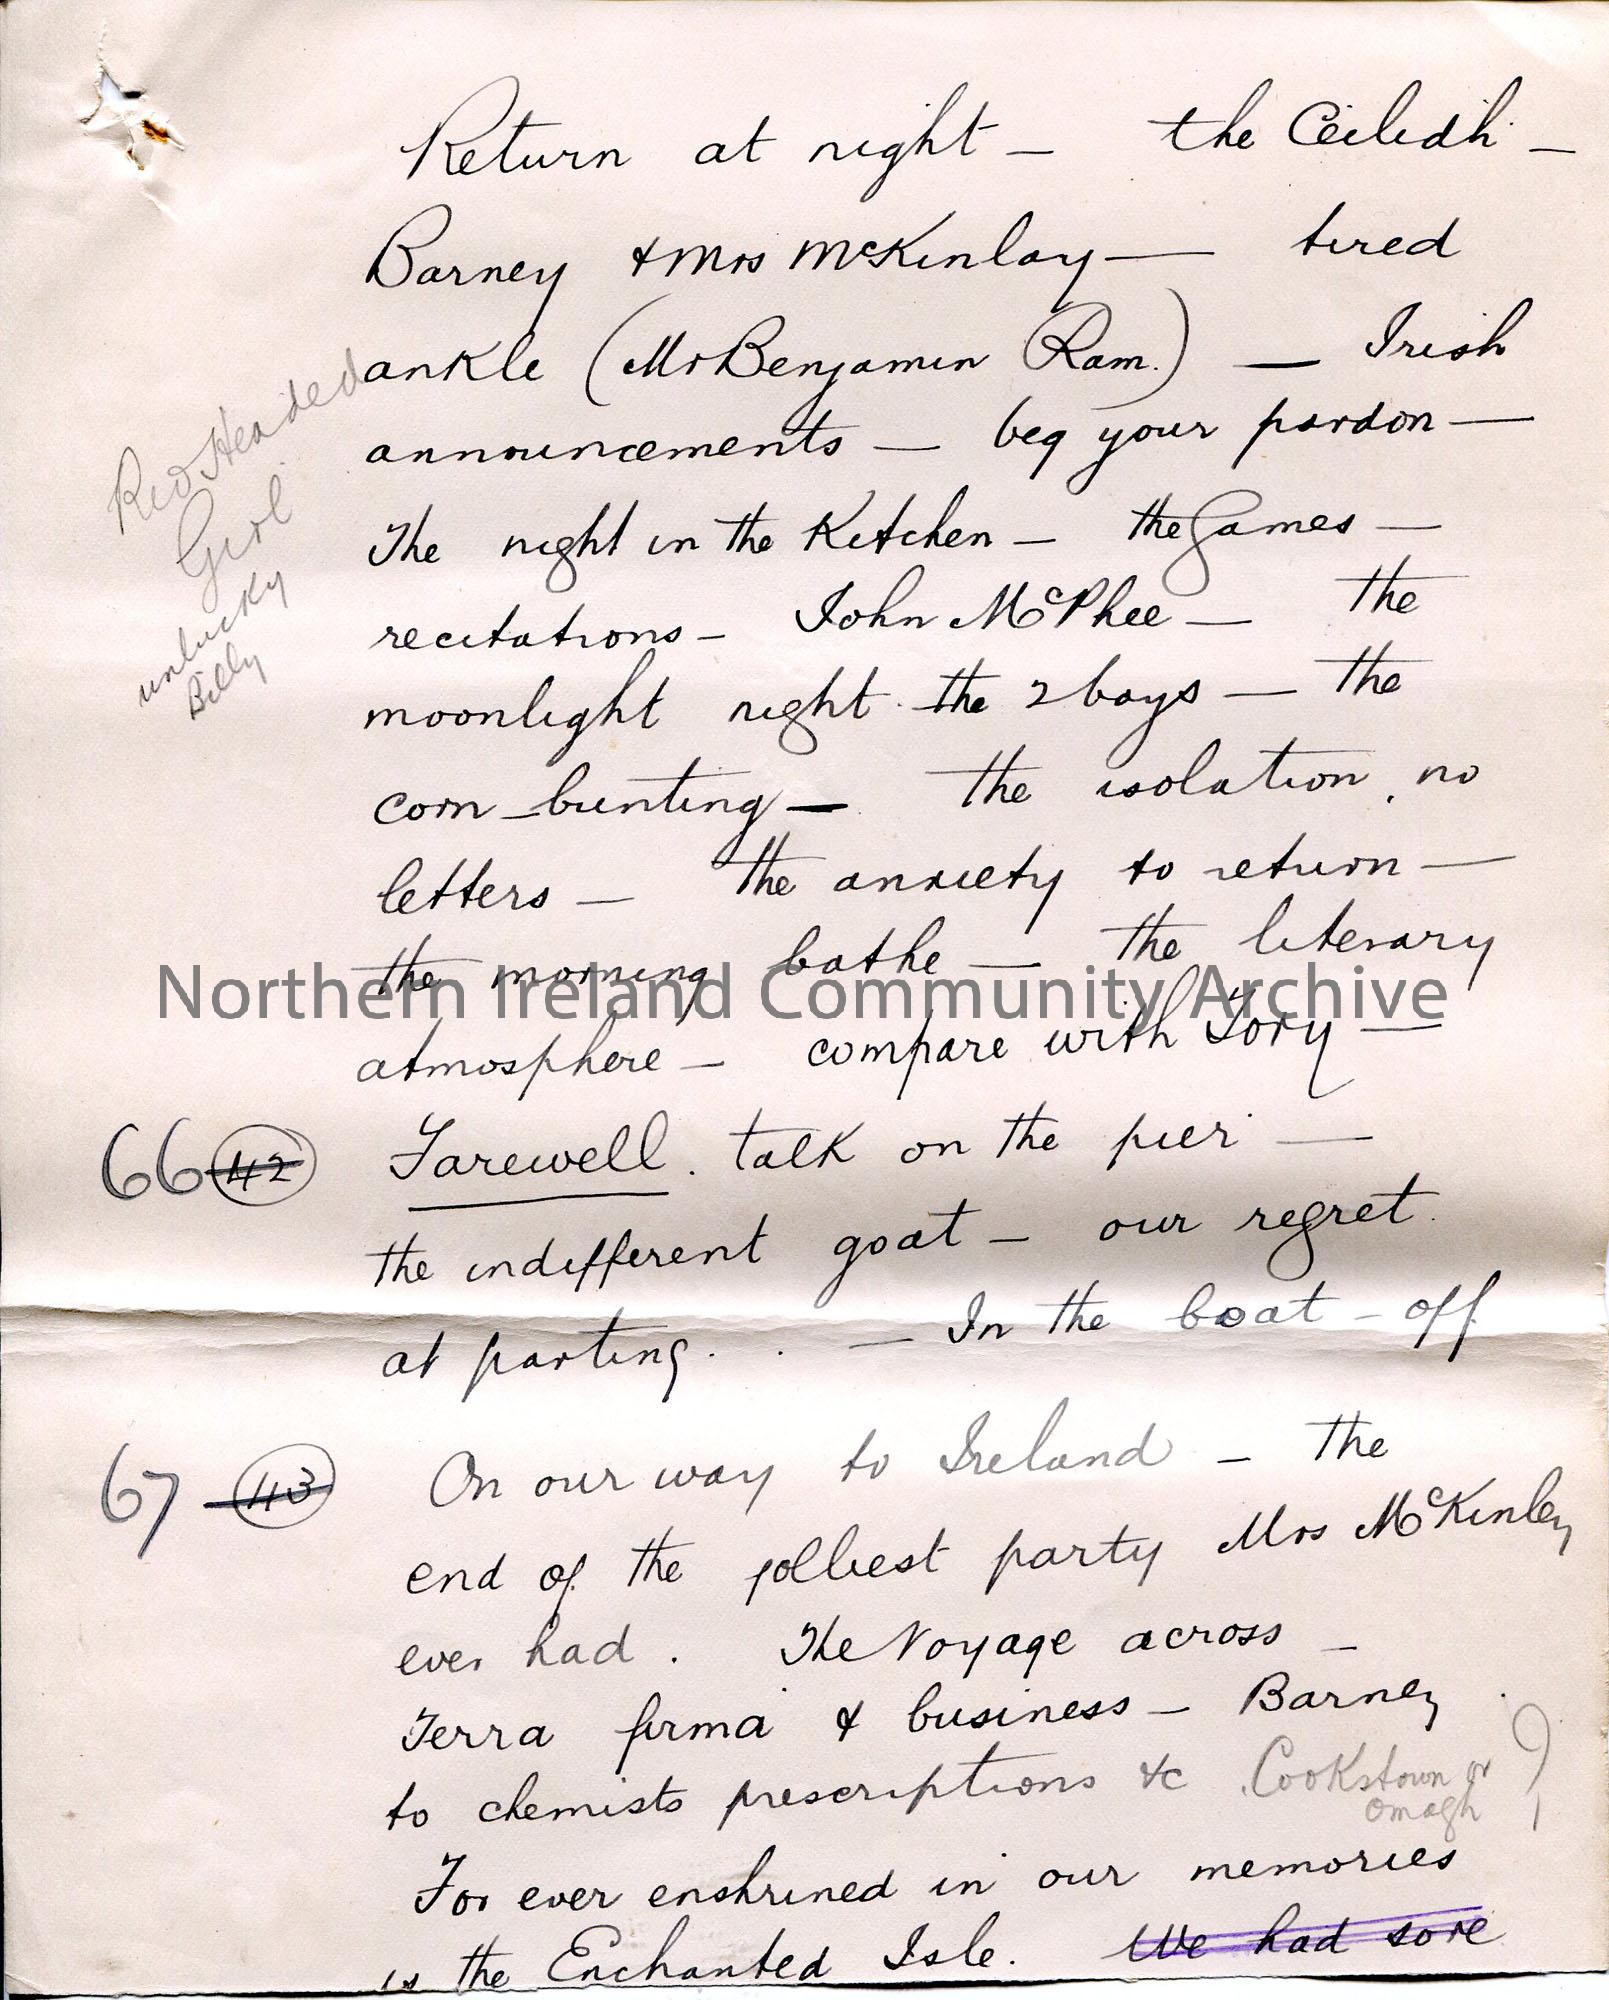 Return at night – the Ceilidh –
Barney & Mrs McKinlay — tired
ankle (Mr Benjamin Ram.) — Irish
announcements — beg your pardon —
Red Headed
Girl
unlucky
Billy
The night in the Kitchen – the Games —
recitations – John McPhee — the
moonlight night. the 2 boys — the
corn-bunting — the isolation, no
letters — the anxiety to return —
the morning bathe — the literary
Northern Ireland Community Archive
atmosphere – compare with Tory —
66 42 Farewell. talk on the pier —
the indifferent goat – our regret.
at parting. . — In the boat – off
67 43 On our way to Ireland – the
end of the jolliest party Mrs McKinley
ever had. The Voyage across –
Terra firma & business – Barney
to chemists prescriptions &c Cookstown or ?
Omagh
For ever enshrined in our memories
is the Enchanted Isle. We had sore